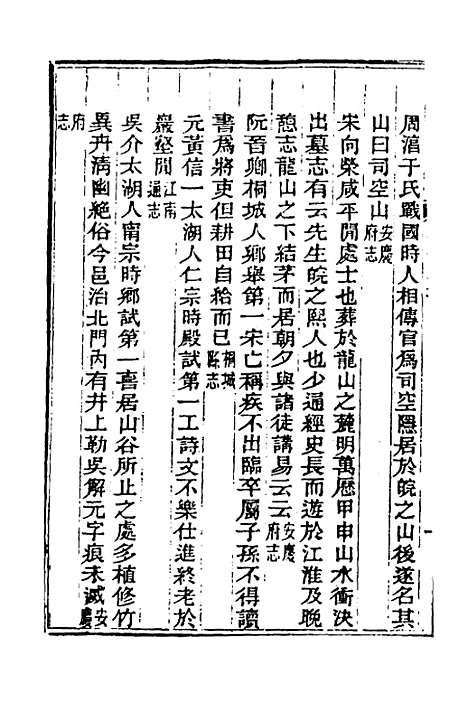 周淐于氏戰國時人相傳官爲司空隱居於皖之山後遂名其
山曰司空山安慶府志
宋向榮咸平閒處士也葬於龍山之麓明萬歷甲申山水衝決
出墓志有云先生皖之熙人也少通經史長而遊於江淮及晚
憩志龍山之下結茅而居朝夕與諸徒講易云云安慶府志
阮晉卿桐城人鄉舉第一宋亡稱疾不出臨卒屬子孫不得讀
書爲將吏但耕田自給而已桐城縣志
元黃信一太湖人仁宗時殿試第一工詩文不樂仕進終老於
巖壑閒江南通志
吳介太湖人南宗時鄉試第一喜居山谷所止之處多植修竹
異卉淸幽絶俗今邑治北門內有井上勒吳解元字痕未滅安慶
府志